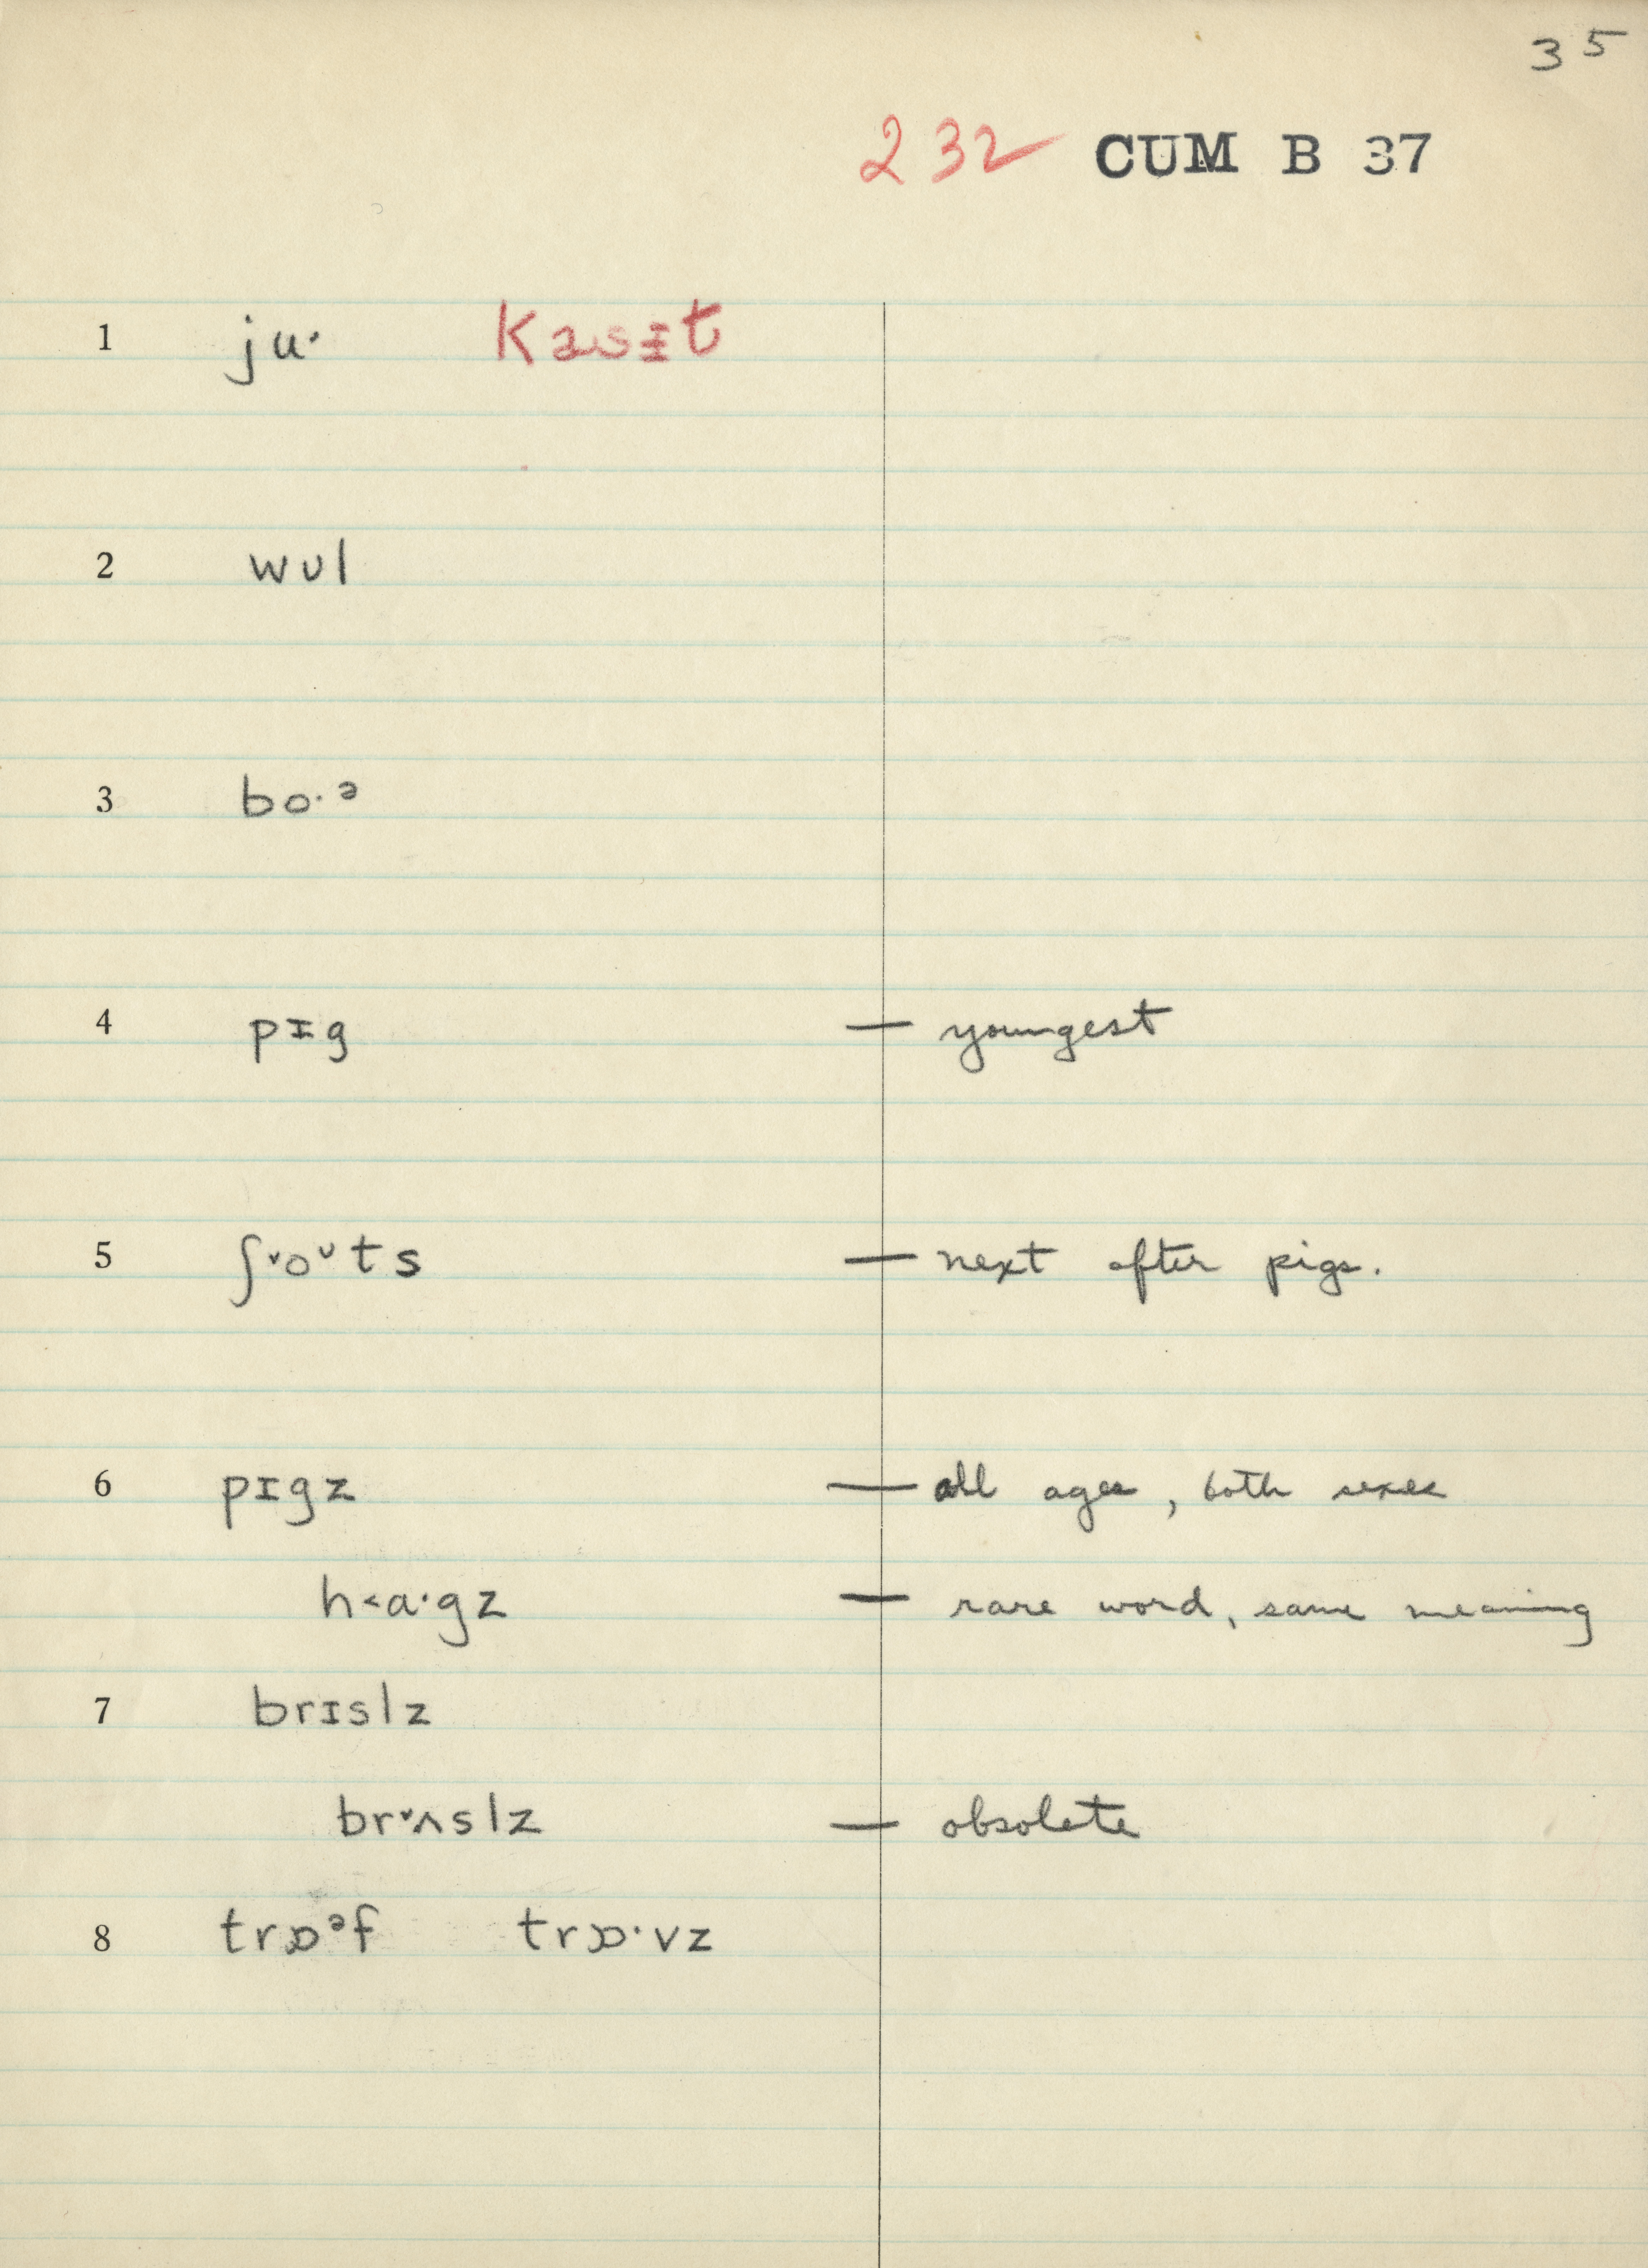 35
232 CUM B 37
1 ju· Kasɪt
2 wʊl
3 bo·ᵊ
4 pɪg — youngest
5 ʃᵛoᵛts — next after pigs.
6 pɪgz — all ages, both sexes
h<ɑ·gz — rare word, same meaning
7 brɪslz
brᵛʌslz — obsolete
8 trɒᵊf trɒ·vz